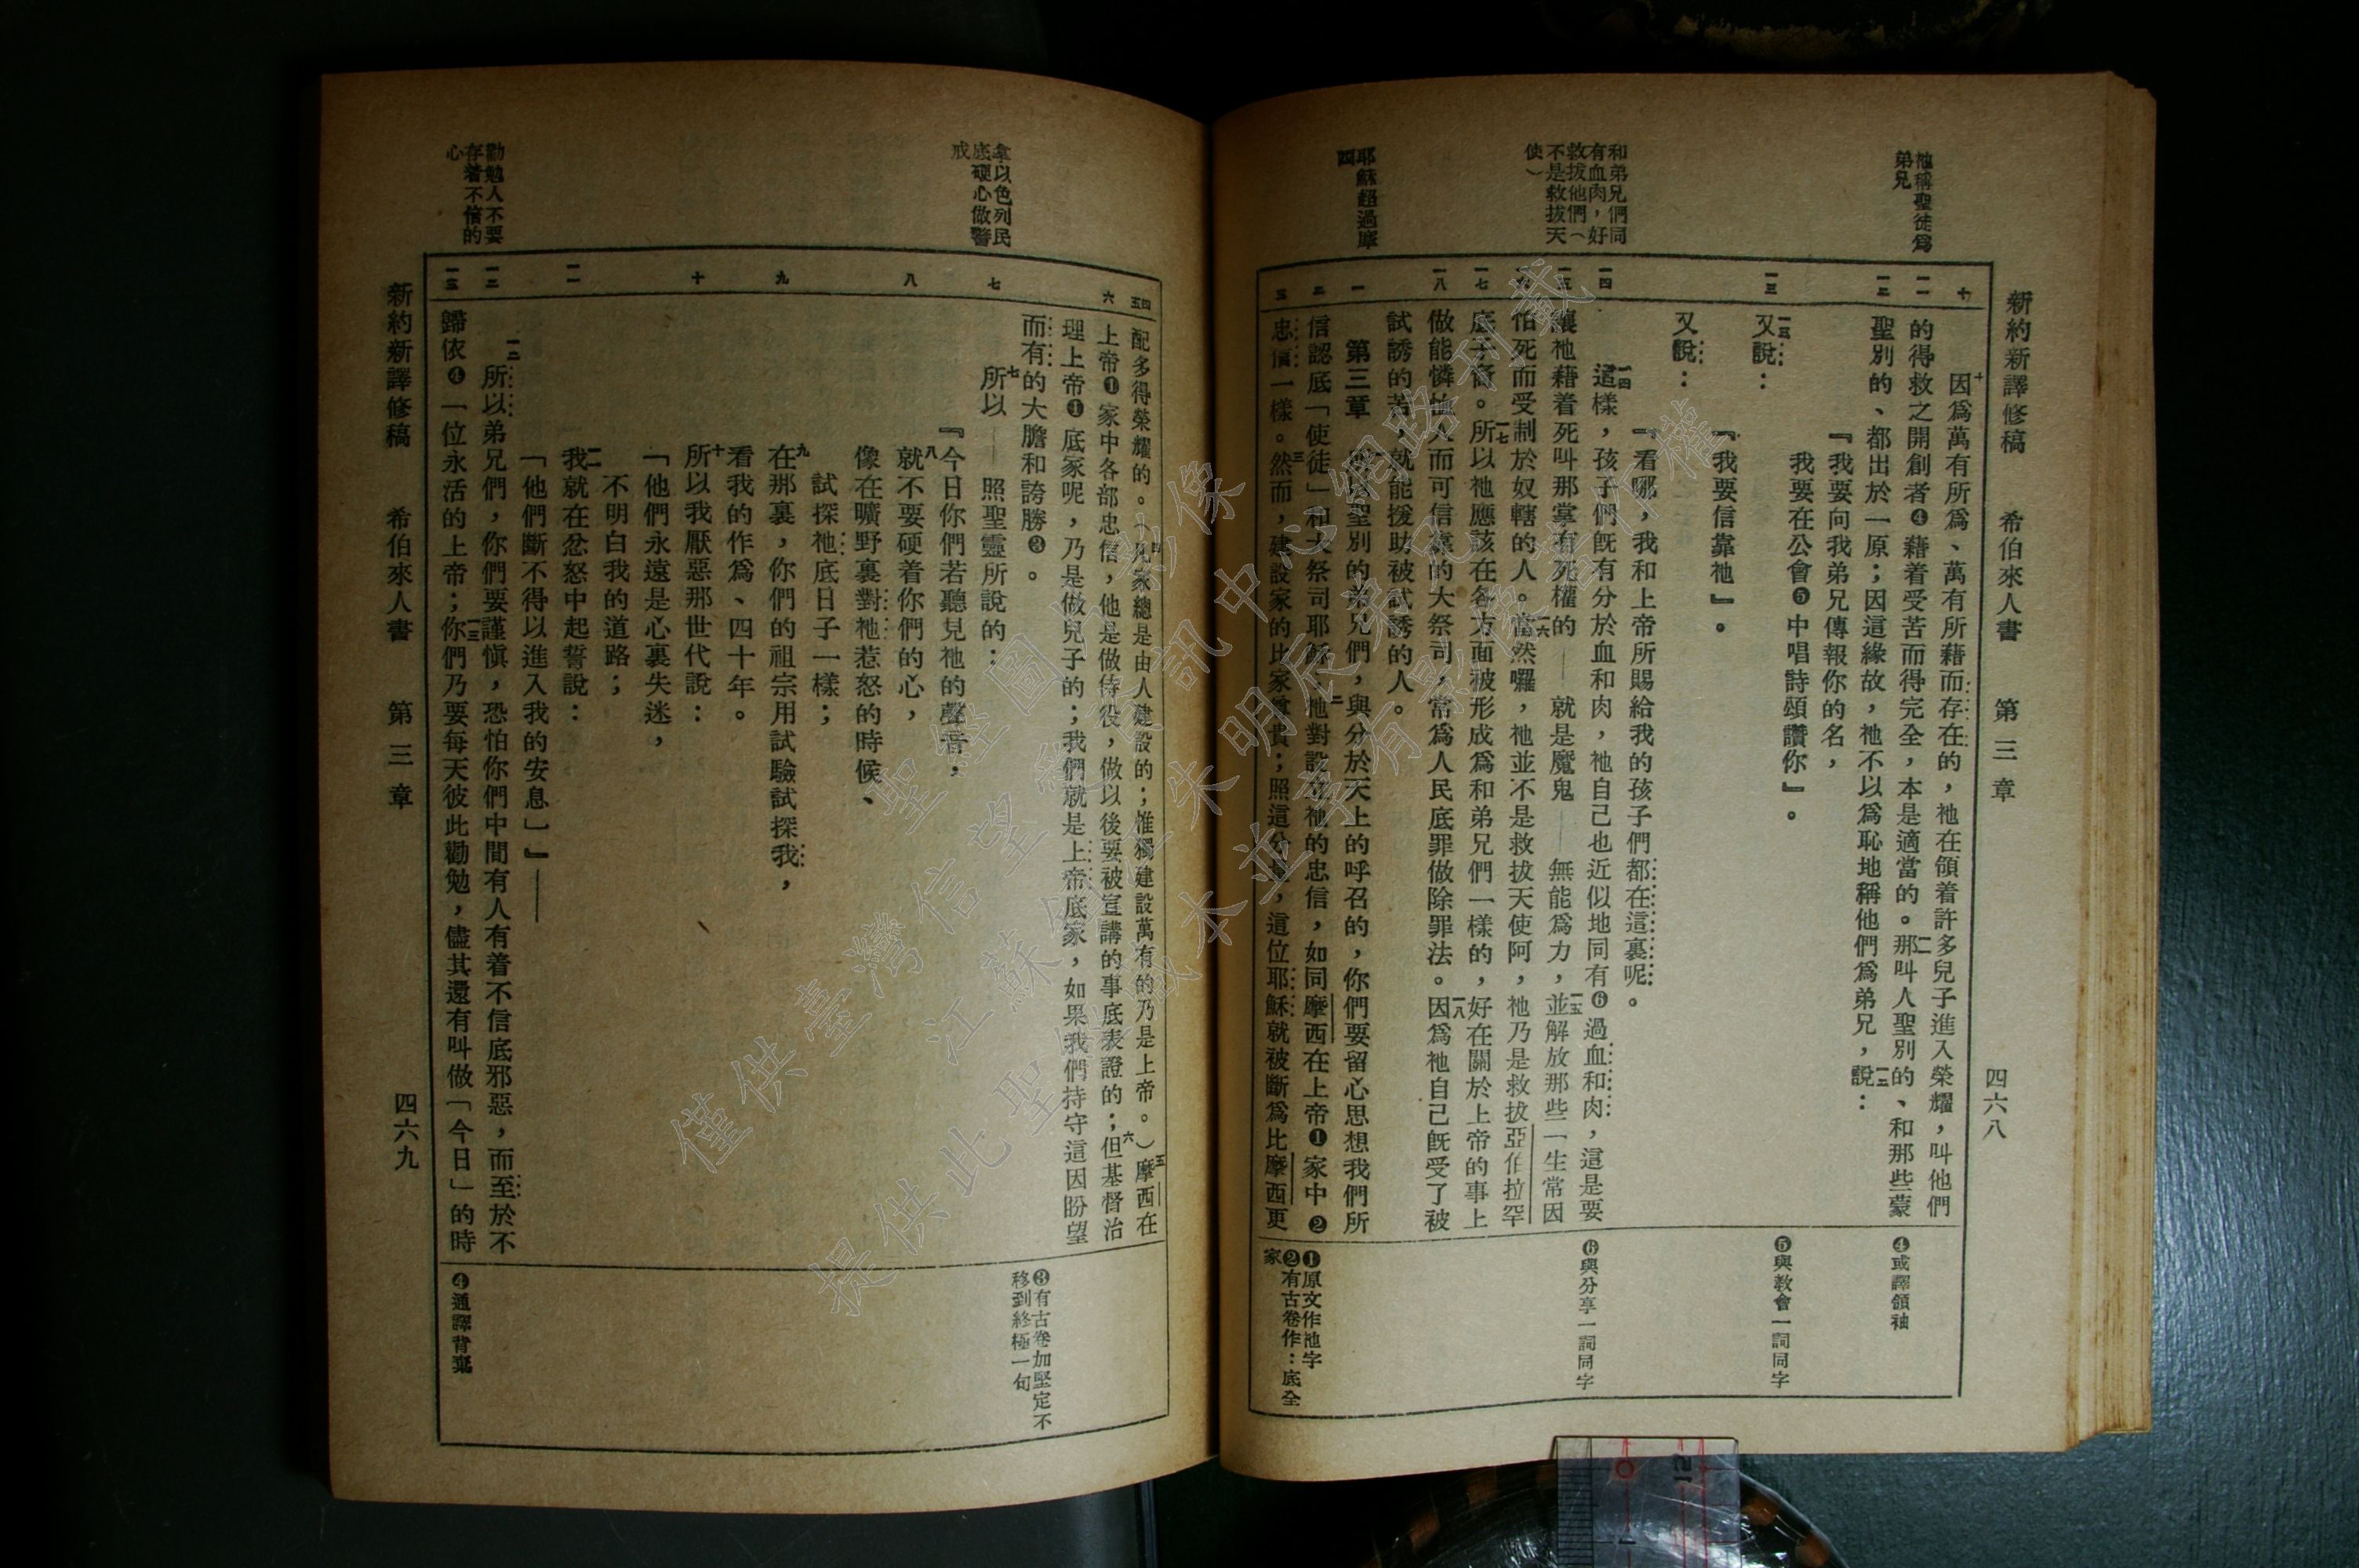 新約新譯修稿　希伯來人書　第三章　四六八
祂稱聖徒爲
弟兄
和弟兄們同
有血肉，好
救拔他們（
不是救拔天
使）
耶穌超過摩
西
十
一一
一二
一三
一四
一五
一六
一七
一八
一
二
三
十因爲萬有所爲、萬有所藉而存在的，祂在領着許多兒子進入榮耀，叫他們
的得救之開創者❹藉着受苦而得完全，本是適當的。一一那叫人聖別的、和那些蒙
聖別的、都出於一原；因這緣故，祂不以爲恥地稱他們爲弟兄，一二說：
『我要向我弟兄傳報你的名，
我要在公會❺中唱詩頌讚你』。
一三又說：
『我要信靠祂』。
又說：
『看哪，我和上帝所賜給我的孩子們都在這裏呢。
一四這樣，孩子們旣有分於血和肉，祂自己也近似地同有❻過血和肉，這是要
讓祂藉着死叫那掌有死權的——就是魔鬼——無能爲力，一五並解放那些一生常因
怕死而受制於奴轄的人。一六當然囉，祂並不是救拔天使阿，祂乃是救拔亞伯拉罕
底子裔。一七所以祂應該在各方面被形成爲和弟兄們一樣的，好在關於上帝的事上
做能憐恤人而可信靠的大祭司，常爲人民底罪做除罪法。一八因爲祂自己旣受了被
試誘的苦，就能援助被試誘的人。
第三章　所以聖別的弟兄們，與分於天上的呼召的，你們要留心思想我們所
信認底「使徒」和大祭司耶穌，二祂對設立祂的忠信，如同摩西在上帝❶家中❷
忠信一樣。三然而，建設家的比家尊貴；照這分量，這位耶穌就被斷爲比摩西更
❹或譯領袖
❺與教會一詞同字
❻與分享一詞同字
❶原文作祂字
❷有古卷作：底全
家
拿以色列民
底硬心做警
戒
勸勉人不要
存着不信的
心
四
五
六
七
八
九
十
一一
一二
一三
配多得榮耀的。（四凡家總是由人建設的；惟獨建設萬有的乃是上帝。）五摩西在
上帝❶家中各部忠信，他是做侍役，做以後要被宣講的事底表證的；六但基督治
理上帝❶底家呢，乃是做兒子的；我們就是上帝底家，如果我們持守這因盼望
而有的大膽和誇勝❸。
七所以——照聖靈所說的：
『今日你們若聽見祂的聲音，
八就不要硬着你們的心，
像在曠野裏對祂惹怒的時候、
試探祂底日子一樣；
九在那裏，你們的祖宗用試驗試探我，
看我的作爲、四十年。
十所以我厭惡那世代說：
「他們永遠是心裏失迷，
不明白我的道路；
一一我就在忿怒中起誓說：
「他們斷不得以進入我的安息」』——
一二所以弟兄們，你們要謹愼，恐怕你們中間有人有着不信底邪惡，而至於不
歸依❹一位永活的上帝；一三你們乃要每天彼此勸勉，儘其還有叫做「今日」的時
❸有古卷加堅定不
移到終極一句
❹通譯背棄
新約新譯修稿　希伯來人書　第三章　四六九
僅供臺灣信望愛資訊中心網路刊載
提供此聖經版本並享有影像著作權